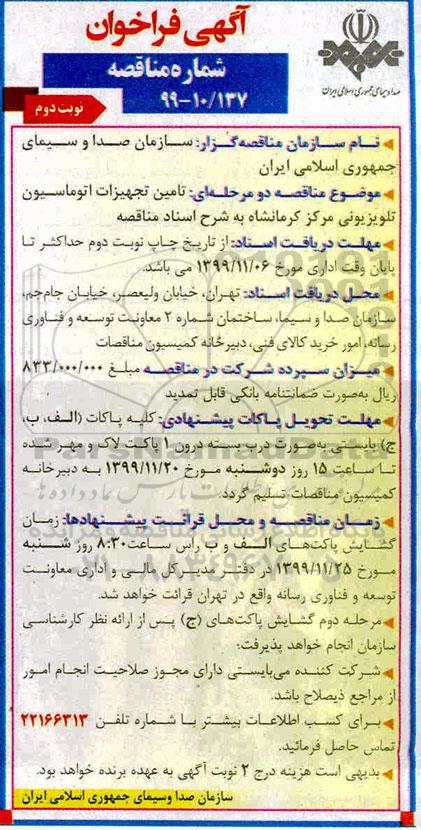 آگهی فراخوان
شماره مناقصه
۹۹-۱۰/۱۳۷
نوبت دوم
صدا و سیمای جمهوری اسلامی ایران
نـام سـازمان مناقصه‌گـزار: سـازمان صـدا و سـیمای
جمهوری اسلامی ایران
موضـوع مناقصه دو مرحله‌ای: تامین تجهیزات اتوماسیون
تلویزیونی مرکز کرمانشاه به شرح اسناد مناقصه
مهلـت دریافـت اسـناد: از تاریخ چـاپ نوبت دوم حداکثر تـا
پایان وقت اداری مورخ ۱۳۹۹/۱۱/۰۶ می باشد.
محـل دریافت اسـناد: تهران، خیابان ولیعصـر، خیابان جام‌جم،
سازمان صدا و سیما، ساختمان شماره ۲ معاونت توسعه و فناوری
رسانه، امور خرید کالای فنی، دبیرخانه کمیسیون مناقصات
میـزان سـپرده شـرکت در مناقصـه مبلـغ ۸۳۳/۰۰۰/۰۰۰
ریال به‌صورت ضمانتنامه بانکی قابل تمدید
مهلـت تحویـل پـاکات پیشـنهادی: کلیه پـاکات (الـف، ب،
ج) بایستی به‌صورت درب بسته درون ۱ پاکت لاک و مهـر شده
تـا سـاعت ۱۵ روز دوشـنبه مـورخ ۱۳۹۹/۱۱/۲۰ بـه دبیرخانـه
کمیسیون مناقصات تسلیم گردد.
زمـان مناقصـه و محـل قرائـت پیشـنهادها: زمـان
گشـایش پاکت‌های الـف و ب راس ساعت ۸:۳۰ روز شـنبه
مورخ ۱۳۹۹/۱۱/۲۵ در دفتـر مدیرکل مالـی و اداری معاونـت
توسعه و فناوری رسانه واقع در تهران قرائت خواهد شد.
مرحلـه دوم گشـایش پاکت‌هـای (ج) پـس از ارائه نظر کارشناسـی
سازمان انجام خواهد پذیرفت؛
شـرکت کننـده می‌بایسـتی دارای مجـوز صلاحیـت انجـام امـور
از مراجع ذیصلاح باشد.
بـرای کسـب اطلاعـات بیشـتر بـا شـماره تلفـن ۲۲۱۶۶۳۱۳
تماس حاصل فرمائید.
بدیهی است هزینه درج ۲ نوبت آگهی به عهده برنده خواهد بود.
سازمان صدا وسیمای جمهوری اسلامی ایران
ParsNamadData